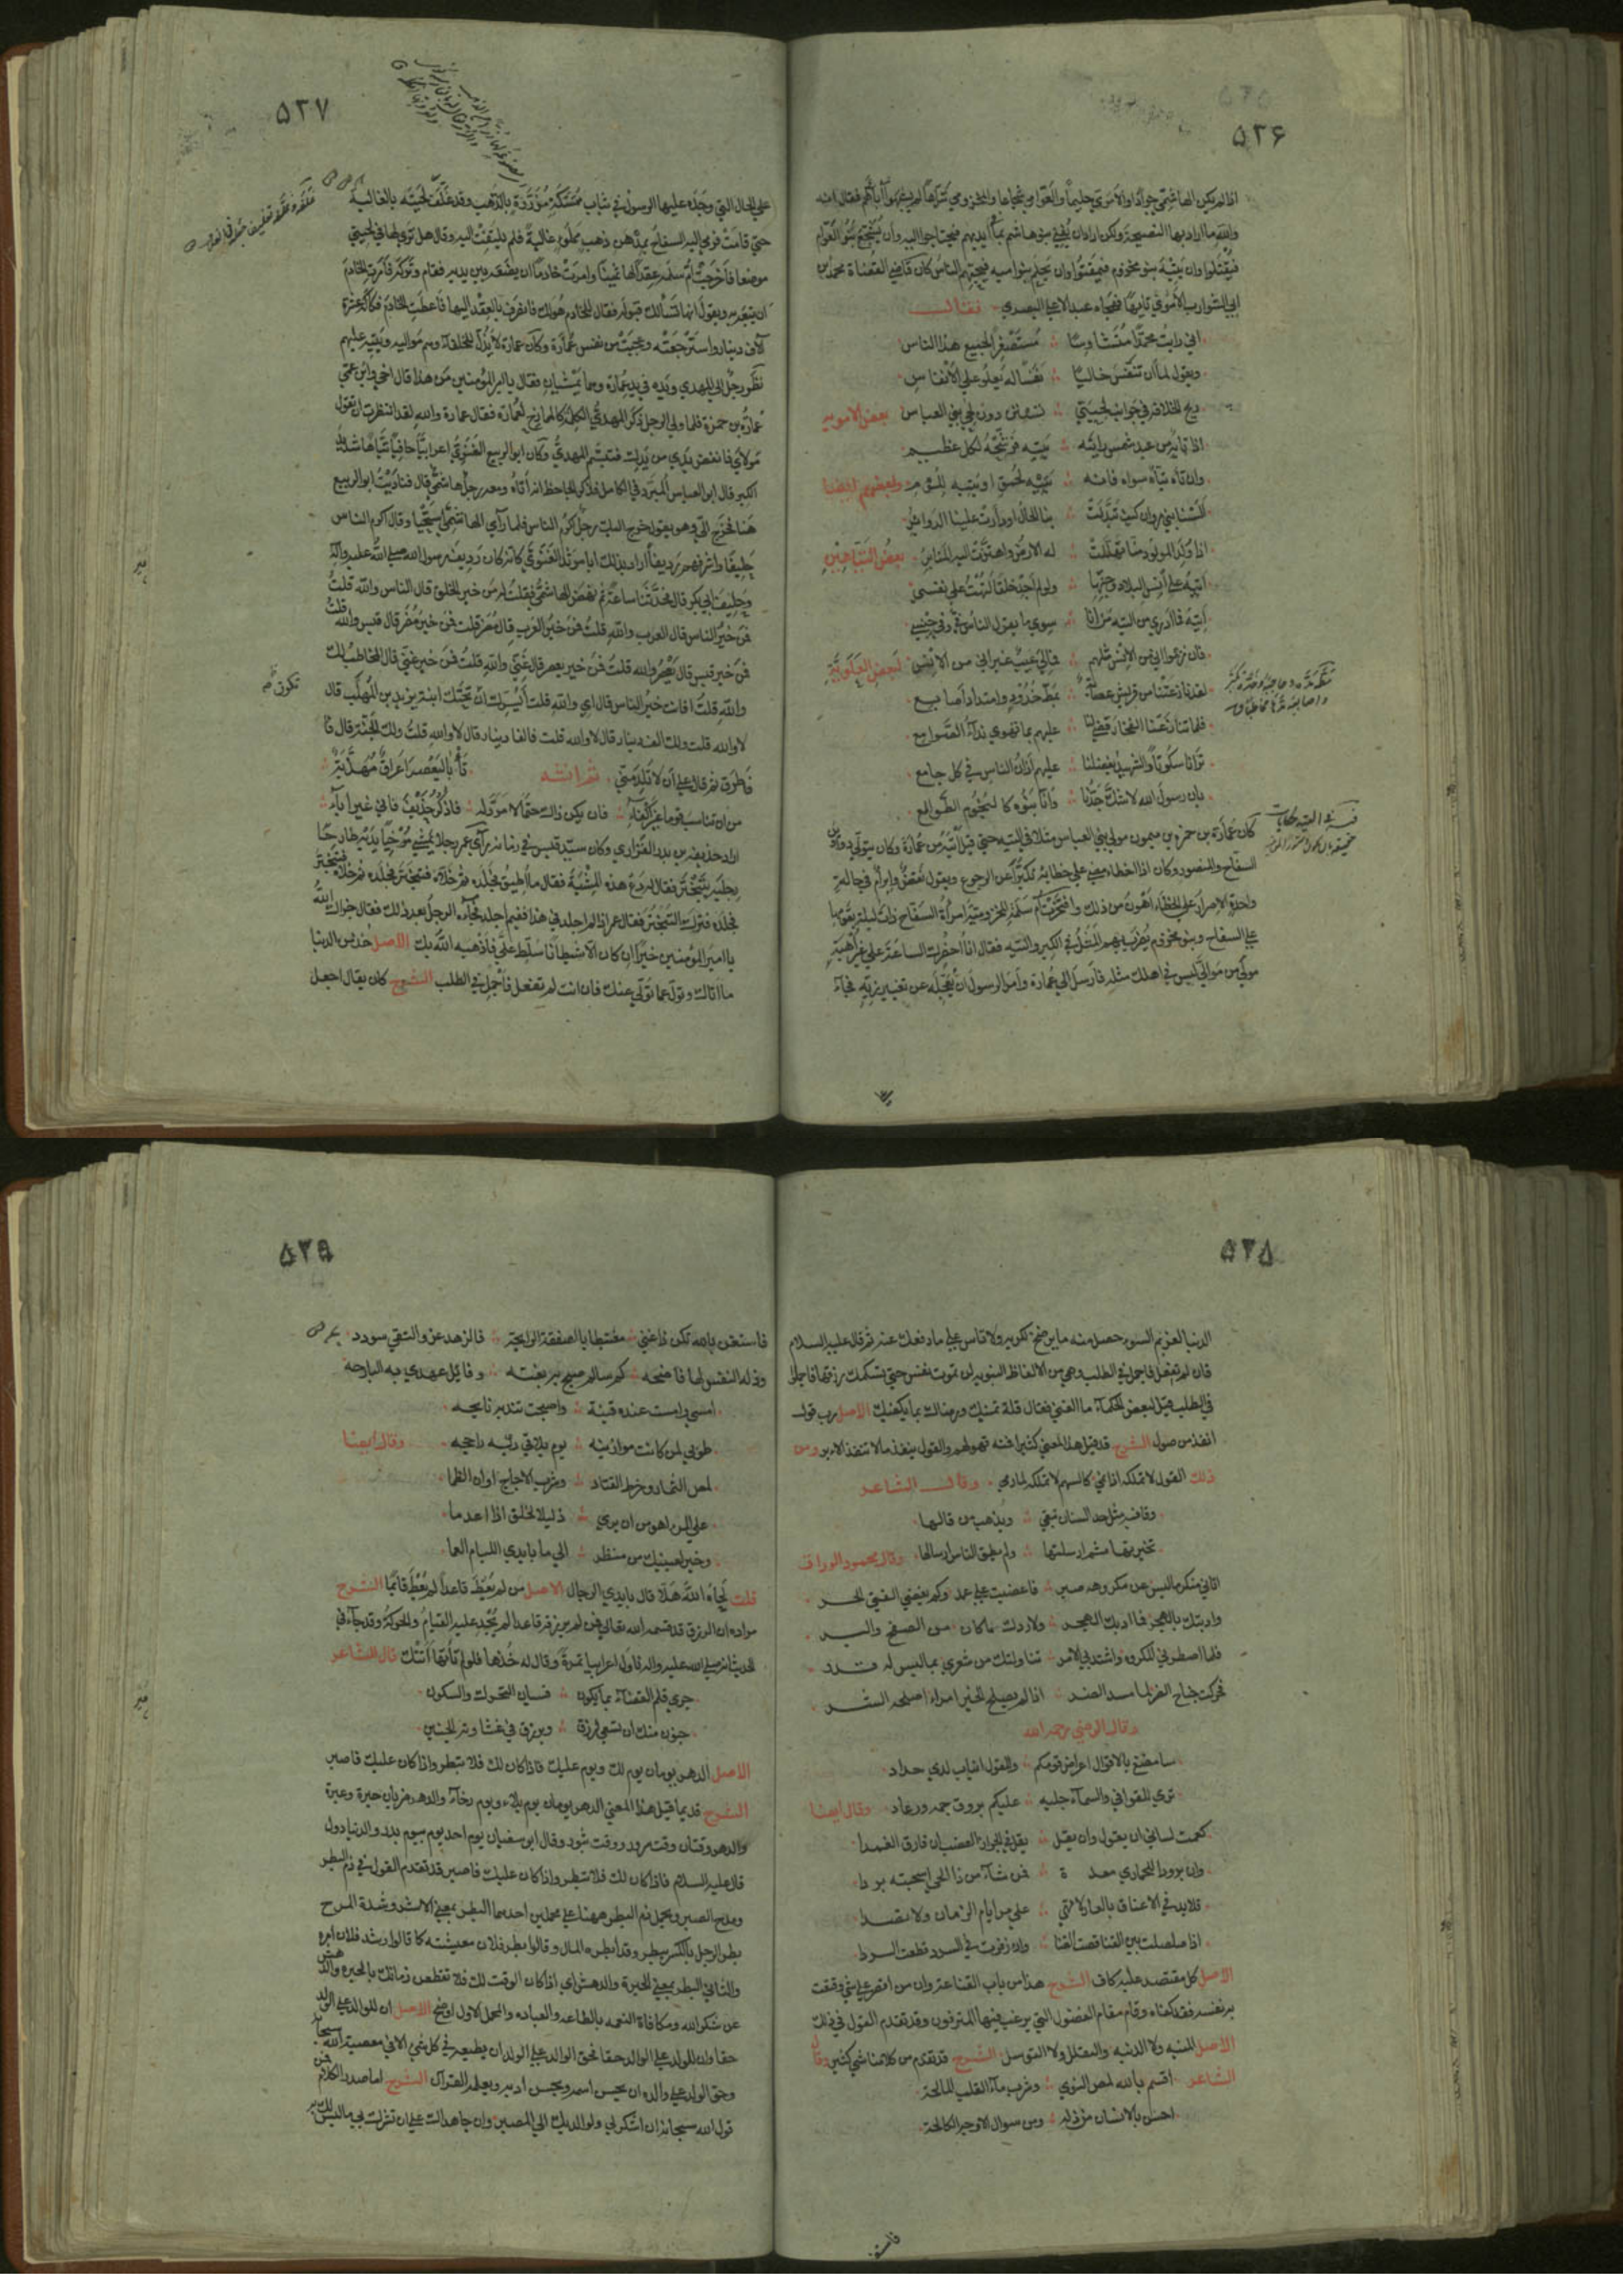 ٥٢٦
اذا لم يكن الهاشمي جوادا والاموي حليما والعوامي شجاعا والمخزومي تياها لم يشبهوا آباءهم فقال انه
والله ما اراد بها النصيحة ولكن اراد ان يفني بنو هاشم بما في ايديهم فيحتاجوا اليه وان يشجع بنو العوام
فيقتلوا وان يتيه بنو مخزوم فيمقتوا وان يحلم بنو اميه فيحبهم الناس كان قاضي القضاة محمد بن
ابي الشوارب الاموي تايها فهجاه عبد الاعلي البصري فقال
اني رايت محمدا متشاوسا مستصغرا لجميع هذا الناس
ويقول لما ان تنفس خاليا نفسا له يعلو علي الانفاس
ويح الخلافة في جوانب لحيتي تستن دون لحي بني العباس بعض الامويه
اذا تايه من عبد شمس رايته يتيه فرشحه لكل عظيم
وان تاه تياه سواه فانه يتيه لحمق او يتيه للوم ولبعضهم ايضا
السنا بني مروان كيف تبدلت بنا الحال او دارت علينا الدواير
اذا ولد المولود منا تهللت له الارض واهتزت اليه المنابر بعض التياهين
اتيه علي انس البلاد وجنها ولو لم اجد خلقا لتهت علي نفسي
اتيه فما ادري من التيه من انا سوي ما يقول الناس في وفي جنسي
فان زعموا اني من الانس مثلهم فمالي عيب غير اني من الانس لبعض العلوية
لقد نازعتنا من قريش عصابة بمط خدود وامتداد اصابع
فلما تنازعنا الفخار قضي لنا عليهم بما نهوي نداء الصوامع
ترانا سكوتا والشهيد بفضلنا عليهم اذان الناس في كل جامع
بان رسول الله لا شك جدنا وانا بنوه كالنجوم الطوالع
كان عمارة بن حمزة بن ميمون مولي بني العباس مثلا في التيه حتي قيل اتيه من عمارة وكان يتولي دواوين
السفاح والمنصور وكان اذا اخطاء مضي علي خطايه تكبرا عن الرجوع ويقول نقض وابرام في حالة
واحدة الاصرار علي الخطاء اهون من ذلك وافتخرت ام سلمة المخزومية امراة السفاح ذات ليلة بقومها
علي السفاح وبنو مخزوم يضرب بهم المثل في الكبر والتيه فقال انا احضرك الساعة علي غير اهبة
مولي من موالي ليس في اهلك مثله فارسل الي عمارة وامر الرسول ان يعجله عن تغيير زيه فجاء
٥٢٧
علي الحال التي وجده عليها الرسول في ثياب ممسكة مزردة بالذهب وقد غلف لحيته بالغالية
حتي قامت فرمي اليه السفاح بمدهن ذهب مملو غالية فلم يلتفت اليه وقال هل تري لها في لحيتي
موضعا فاخرجت ام سلمه عقدا لها ثمينا وامرت خادما ان يضعه بين يديه فقام وتركه فامرت الخادم
ان يتبعه به ويقول انها تسالك قبوله فقال للخادم هو لك فانصرف بالعقد اليها فاعطت الخادم فكاكه عشرة
آلاف دينار واسترجعته وعجبت من نفس عمارة وكان عمارة لا يذل للخلفاء وهم مواليه ويتيه عليهم
نظر رجل الي المهدي ويده في يد عمارة وهما يمشيان فقال يا امير المؤمنين من هذا قال اخي وابن عمي
عمارة بن حمزة فلما ولي الرجل ذكر المهدي الكلمة كالمازح لعمارة فقال عمارة والله لقد انتظرت ان تقول
مولاي فانفض يدي من يدك فتبسم المهدي وكان ابو الربيع الغنوي اعرابيا جافيا تياها شديد
الكبر قال ابو العباس المبرد في الكامل فذكر الجاحظ انه اتاه ومعه رجل هاشمي قال فناديت ابو الربيع
هنا فخرج الي وهو يقول خرج اليك رجل كرم الناس فلما راي الهاشمي استحيا وقال اكرم الناس
حليفا واشرفهم رديفا اراد بذلك ابا مرثد الغنوي كان ردبف رسول الله صلي الله عليه واله
وحليف ابي بكر قال فتحدثنا ساعة ثم نهض الهاشمي فقلت له من خير الخلق قال الناس والله قلت
فمن خير الناس قال العرب والله قلت فمن خير العرب قال مضر قلت فمن خير مضر قال قيس والله قلت
فمن خير قيس قال يعصر والله قلت فمن خير يعصر قال غني والله قلت فمن خير غني قال المخاطب لك
والله قلت افانت خير الناس قال اي والله قلت ايسرك ان تحتك ابنة يزيد بن المهلب قال
لا والله قلت ولك الف دينار قال لا والله قلت فالفا دينار قال لا والله قلت ولك الجنة قال
فاطرق ثم قال علي ان لا تلد مني ثم انشد تأبي ليعصر اعراق مهذبة
من ان تناسب قوما غير اكفاء فان يكن ذاك حتما لا مرد له فاذكر حذيف فاني غير اباء
اراد حذيفه بن بدر الفزاري وكان سيد قيس في زمانه رآي عمر رجلا يمشي مرخيا يديه طارحا
رجليه يتبختر فقال له دع هذه المشية فقال ما اطيق فجلده ثم خلاه فتبختر فجلده ثم خلاه فتبختر
فجلده فترك التبختر فقال عمر اذا لم اجلد في هذا ففيم اجلد فجاءه الرجل بعد ذلك فقال جزاك الله
يا امير المؤمنين خيرا ان كان الا شيطانا سلط علي فاذهبه الله بك الاصل خذ من الدنيا
ما اتاك وتول عما تولي عنك فان انت لم تفعل فاجمل في الطلب الشرح كان يقال اجعل
٥٢٨
قان لم تفعل فاجمل في الطلب وهي من الالفاظ النبويه لن تموت نفس حتي تستكمل رزقها فاجملوا
في الطلب قيل لبعض الحكماء ما الغني فقال قلة تمنيك ورضاك بما يكفيك الاصل رب قول
انفذ من صول الشرح قد قيل هذا المعني كثيرا فمنه قولهم والقول ينفذ ما لا تنفذ الابر ومن
ذلك القول لا تملكه اذا نمي كالسهم لا تملكه اذا رمي وقال الشاعر
وقافية مثل حد السنان تبقي ويذهب من قالها
تخيرتها ثم ارسلتها ولم يطق الناس ارسالها وقال محمود الوراق
اتاني منكر ما ليس عن مكروهه صبر فاغضيت علي عمد وكم يغضي الفتي الحر
وادبتك بالهجر فما ادبك الهجر ولا ردك عما كان من الصفح والبر
فلما اضطرني المكروه واشتد بي الامر تناولتك من شعري بما ليس له قدر
فحركت جناح الضر لما مسك الضر اذا لم يصلح الخير امراء اصلحه الشر
وقال الرضي رحمه الله
سامضغ بالاقوال اعراض قومكم وللقول انياب لدي حداد
تري للقوافي والسمآء جلية عليكم بروق جمة ورعاد وقال ايضا
كعمت لساني ان يقول وان يقل فقل في الجراز العضب ان فارق الغمدا
وان برودا للمخازي معدة فمن شاء من ذا الحي اسحبته بردا
قلايد في الاعناق بالعار لا تهي علي مر ايام الزمان ولا تصدا
اذا صلصلت بين القنا قضت القنا وان زفرت في السرد قطعت السردا
الاصل كل مقتصر عليه كاف الشرح هذا من باب القناعة وان من اقتصر علي شي وقنعت
به نفسه فقد كفاه وقام مقام الفضول التي يرغب فيها المترفون وقد تقدم القول في ذلك
الاصل المنيه ولا الدنيه والتقلل ولا التوسل الشرح قد تقدم من كلامنا شي كثير وقال
الشاعر اقسم بالله لمص النوي وشرب ماء القلب المالحة
احسن بالانسان من ذله ومن سوال الاوجه الكالحة
٥٢٩
فاستغن بالله تكن ذا غني مغتبطا بالصفقة الرابحة فالزهد عز والتقي سودد
وذلة النفس لها فاضحه كم سالم صيح به بغتة وقايل عهدي به البارحة
امسي وامست عنده قينة واصبحت تندبه نايحه
طوبي لمن كانت موازينه يوم يلاقي ربه راجحه وقال ايضا
لمص الثماد وخرط القتاد وشرب الاجاج اوان الظما
علي المرء اهون من ان يري ذليلا لخلق اذا اعدما
وخير لعينيك من منظر الي ما بايدي الليام العما
قلت لحاه الله هلا قال بايدي الرجال الاصل من لم يعط قاعدا لم يعط قائما الشرح
مراده ان الرزق قد قسمه الله تعالي فمن لم يرزقه قاعدا لم يجد عليه القيام والحركة وقد جاء في
الحديث انه صلي الله عليه واله ناول اعرابيا تمرة وقال له خذها فلو لم تاتها اتتك قال الشاعر
جري قلم القضاء بما يكون فسيان التحرك والسكون
جنون منك ان تسعي لرزق ويرزق في غشاوته الجنين
الاصل الدهر يومان يوم لك ويوم عليك فاذا كان لك فلا تبطر واذا كان عليك فاصبر
الشرح قديما قيل هذا المعني الدهر يومان يوم بلاء ويوم رخاء والدهر ضربان حبرة وعبرة
والدهر وقتان وقت سرور ووقت ثبور وقال ابو سفيان يوم احد يوم بيوم بدر والدنيا دول
قال عليه السلام فاذا كان لك فلا تبطر واذا كان عليك فاصبر قد تقدم القول في ذم البطر
ومدح الصبر ويحمل ذم البطر ههنا علي محملين احدهما البطر بمعني الاشر وشدة المرح
بطر الرجل بالكسر يبطر وقد ابطره المال وقالوا بطر فلان معيشته كما قالوا رشد فلان امره
والثاني البطر بمعني الحيرة والدهش اي اذا كان الوقت لك فلا تقطعن زمانك بالحيرة والدهش
عن شكر الله ومكافاة النعمه بالطاعه والعباده والمحمل الاول اوضح الاصل ان للوالد علي الولد
حقا وان للولد علي الوالد حقا فحق الوالد علي الولد ان يطيعه في كل شي الا في معصية الله سبحانه
وحق الولد علي والده ان يحسن اسمه ويحسن ادبه ويعلمه القرآن الشرح اما صدر الكلام فمن
قول الله سبحانه ان اشكر لي ولوالديك الي المصير وان جاهداك علي ان تشرك بي ما ليس لك به